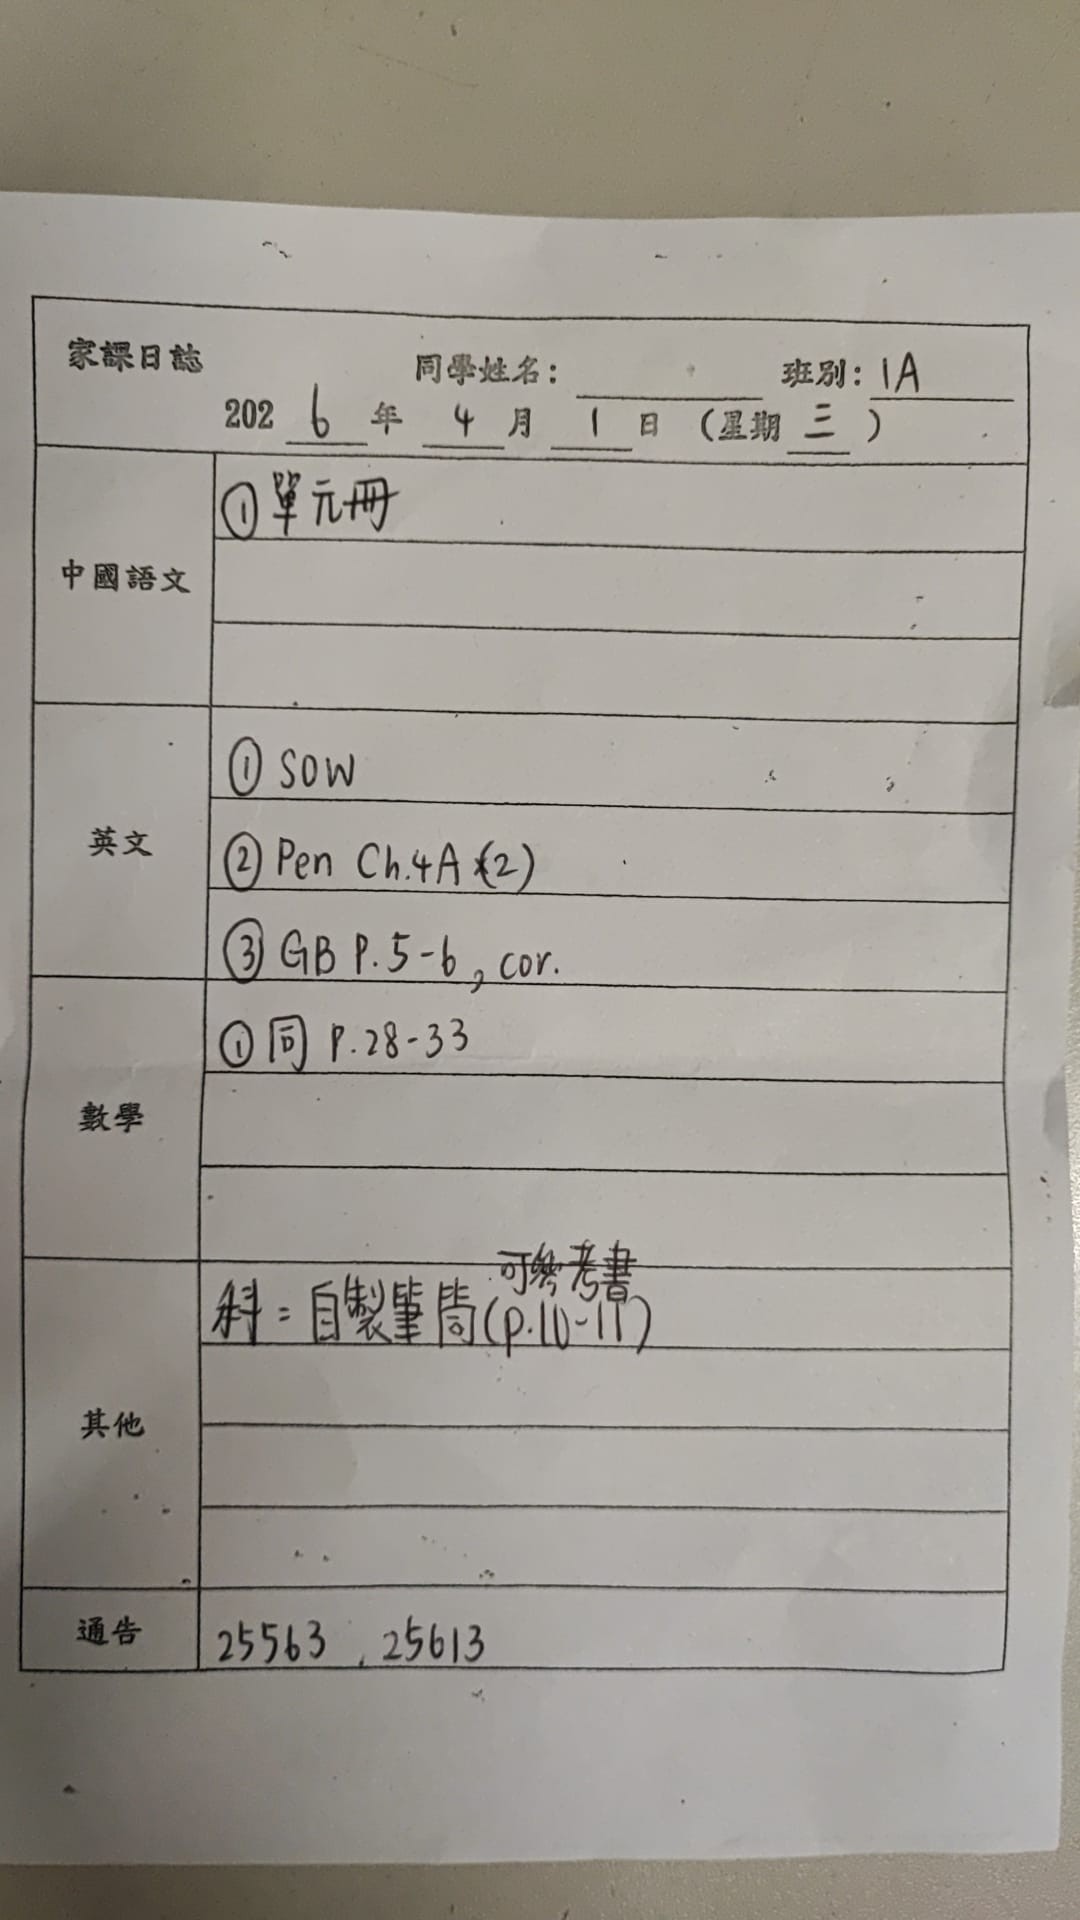 家課日誌 同學姓名： 班別：1A
2026年4月1日（星期三）
中國語文
①單元冊
英文
① SOW
② Pen Ch.4A (2)
③ GB P.5-6, cor.
數學
①同 P.28-33
其他
可參考書
科：自製筆筒(p.10-11)
通告
25563，25613